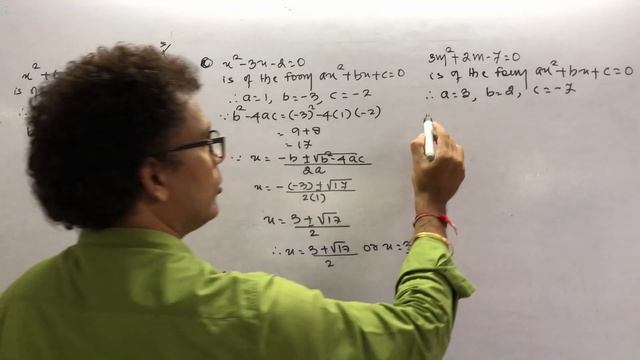 x² +
is of
∴
② x² - 3x - 2 = 0
is of the form ax² + bx + c = 0
∴ a = 1, b = -3, c = -2
∵ b² - 4ac = (-3)² - 4(1)(-2)
= 9 + 8
= 17
∵ x = -b ± √b² - 4ac / 2a
x = -(-3) ± √17 / 2(1)
x = 3 ± √17 / 2
∴ x = 3 + √17 / 2 or x = 3
3m² + 2m - 7 = 0
is of the form ax² + bx + c = 0
∴ a = 3, b = 2, c = -7